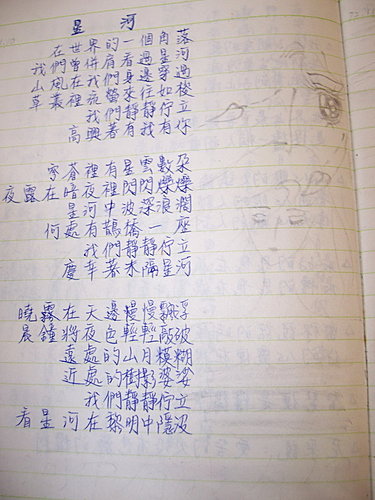 星河
在世界的一個角落
我們曾併肩看過星河
山風在我們身邊穿過
草叢裡夜螢來往如梭
我們靜靜佇立
高興著有我有你
穹蒼裡有星雲數朵
夜露在暗夜裡閃閃爍爍
星河中波深浪闊
何處有鵲橋一座
我們靜靜佇立
慶幸著未隔星河
曉霧在天邊慢慢飄浮
晨鐘將夜色輕輕敲破
遠處的山月模糊
近處的樹影婆娑
我們靜靜佇立
看星河在黎明中隱沒